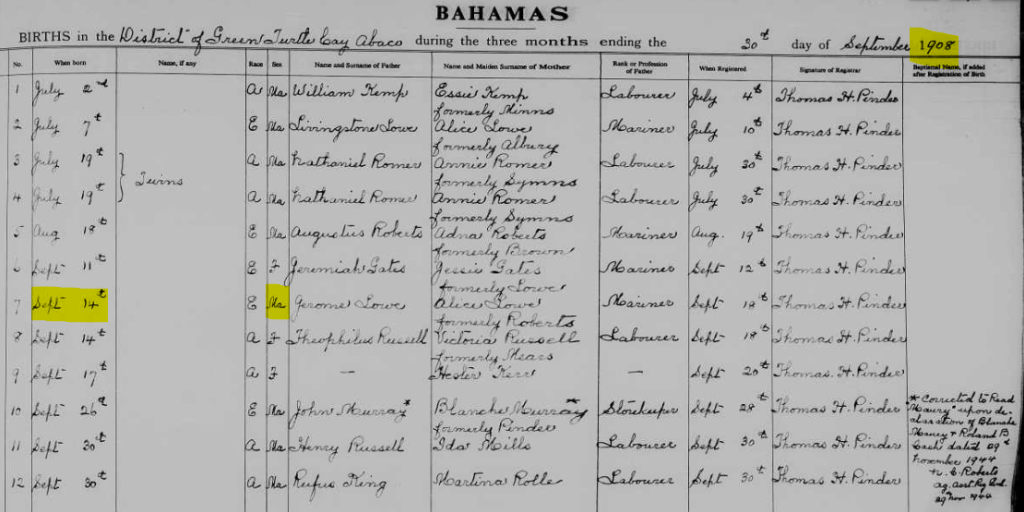 BAHAMAS
BIRTHS in the District of Green Turtle Cay Abaco during the three months ending the 30th day of September 1908
No. When born Name, if any Race Sex Name and Surname of Father Name and Maiden Surname of Mother Rank or Profession of Father When Registered Signature of Registrar Baptismal Name, if added after Registration of Birth
1 July 2nd A Ma William Kemp Essie Kemp Labourer July 4th Thomas H. Pinder
formerly Minns
2 July 7th E Ma Livingstone Lowe Alice Lowe Mariner July 10th Thomas H. Pinder
formerly Albury
3 July 19th A Ma Nathaniel Romer Annie Romer Labourer July 30th Thomas H. Pinder
Twins
formerly Symns
4 July 19th A Ma Nathaniel Romer Annie Romer Labourer July 30th Thomas H. Pinder
formerly Symns
5 Aug 18th E Ma Augustus Roberts Adna Roberts Mariner Aug. 19th Thomas H. Pinder
formerly Brown
6 Sept 11th E F Jeremiah Gates Jessie Gates Mariner Sept 12th Thomas H. Pinder
formerly Lowe
7 Sept 14th E Ma Gerome Lowe Alice Lowe Mariner Sept 18th Thomas H. Pinder
formerly Roberts
8 Sept 14th A F Theophilus Russell Victoria Russell Labourer Sept 18th Thomas H. Pinder
formerly Mears
9 Sept 17th A F — Hester Kerr — Sept 20th Thomas H. Pinder
10 Sept 26th E Ma John Murray* Blanche Murray* Storekeeper Sept 28th Thomas H. Pinder
formerly Pinder
11 Sept 30th A Ma Henry Russell Ida Mills Labourer Sept 30th Thomas H. Pinder
12 Sept 30th A Ma Rufus King Martina Rolle Labourer Sept 30th Thomas H. Pinder
* Corrected to Read
"Maury" upon de-
claration of Blanche
Maury & Roland B
Cash dated 29th
November 1944
Roberts
ag. Asst Rg Gnl.
29 Nov 1944